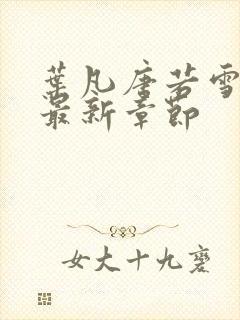 葉凡唐若雪
最新章節
女大十九變